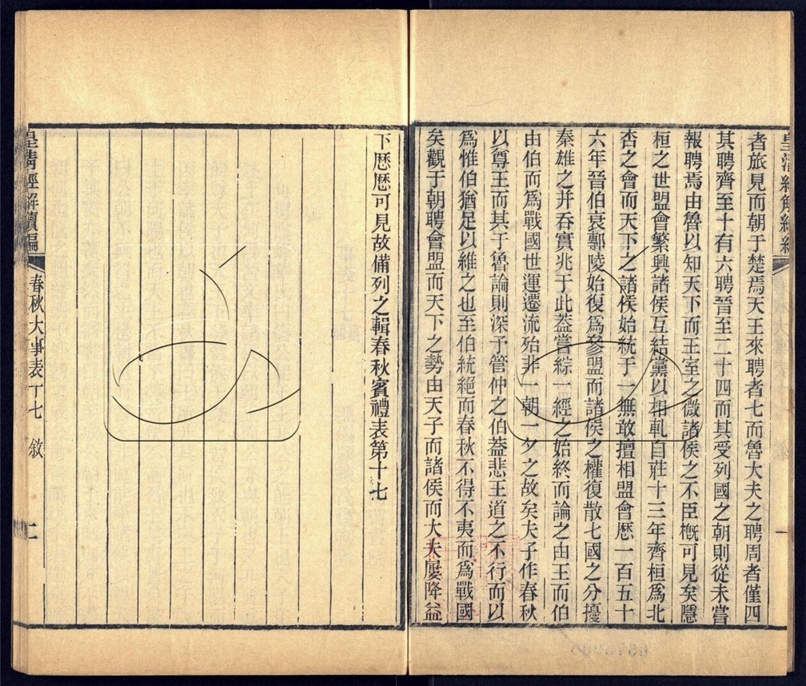 皇清經解續編
者旅見而朝于楚焉天王來聘者七而魯大夫之聘周者僅四
其聘齊至十有六聘晉至二十四而其受列國之朝則從未嘗
報聘焉由魯以知天下而王室之微諸侯之不臣槪可見矣隱
桓之世盟會繁興諸侯互結黨以相軋自莊十三年齊桓爲北
杏之會而天下之諸侯始統于一無敢擅相盟會歷一百五十
六年晉伯衰鄟陵始復爲參盟而諸侯之權復散七國之分擾
秦雄之并吞實兆于此葢嘗綜一經之始終而論之由王而伯
由伯而爲戰國世運遷流殆非一朝一夕之故矣夫子作春秋
以尊王而其于魯論則深予管仲之伯葢悲王道之不行而以
爲惟伯猶足以維之也至伯統絕而春秋不得不夷而爲戰國
矣觀于朝聘會盟而天下之勢由天子而諸侯而大夫屢降益
下歷歷可見故備列之輯春秋賓禮表第十七
皇清經解續編
春秋大事表十七 敘
二